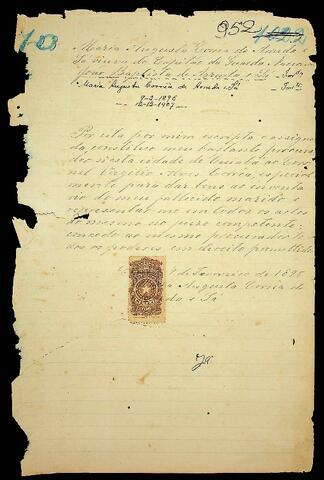 103 952
Maria Augusta Corrêa de Arruda e
Sá viuva do Capitão da Guarda Nacional
José Baptista de Arruda e Sá
Maria Augusta Corrêa de Arruda e Sá
9-2-1896
12-12-1907
Por esta por mim escripta e assigna
da, constituo meu bastante procura
dor nesta cidade de Cuiabá ao Coro
nel Virgilio Alves Corrêa, especial
mente para dar bens ao inventa
rio do meu fallecido marido e
representar-me em todos os actos
do mesmo no juizo competente;
concedo ao mesmo procurador to
dos os poderes em direito permittidos
de Fevereiro de 1896
a Augusta Corrêa de
da e Sá